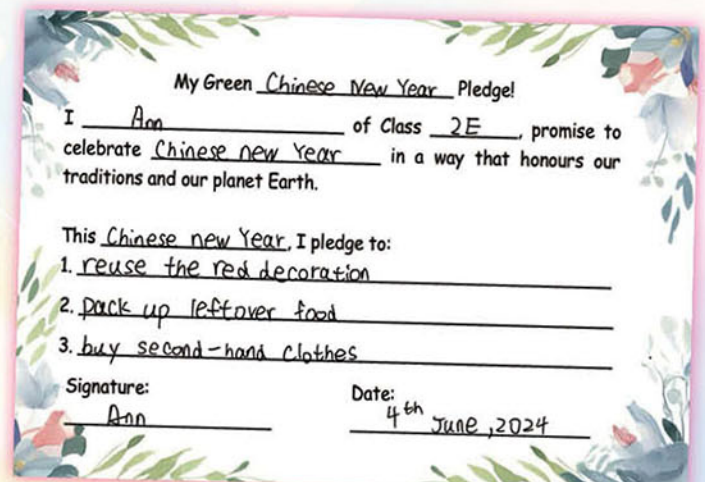 My Green Chinese New Year Pledge!
I Ann of Class 2E, promise to
celebrate Chinese new Year in a way that honours our
traditions and our planet Earth.
This Chinese new Year, I pledge to:
1. reuse the red decoration
2. pack up leftover food
3. buy second-hand clothes
Signature: Date:
Ann 4th June, 2024